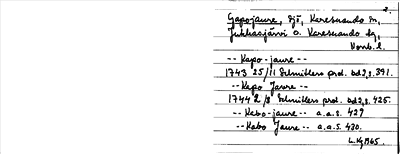 2.
Gapojaure, sjö, Karesuando sn,
Jukkasjärvi o. Karesuando lg,
Norrb. l.
-- Kapo-jaure --
1743 25/11 Schnitlers prot. bd 2, s. 391.
-- Kapo Jaure --
1744 2/8 Schnitlers prot. bd 2, s. 425.
-- Kabo-jaure -- a.a.s. 429
-- Kabo Jaure -- a.a.s. 430.
1965.